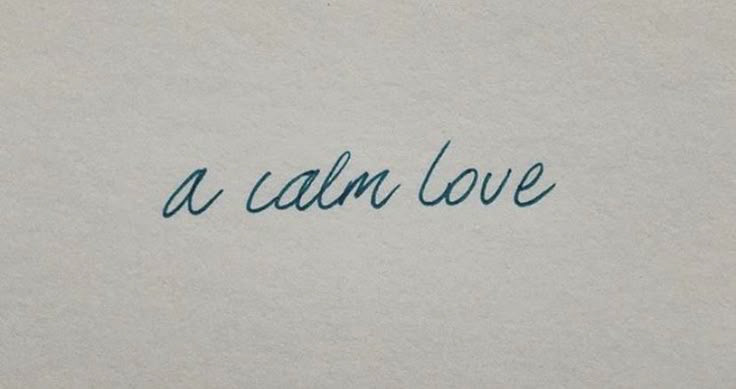 a calm love